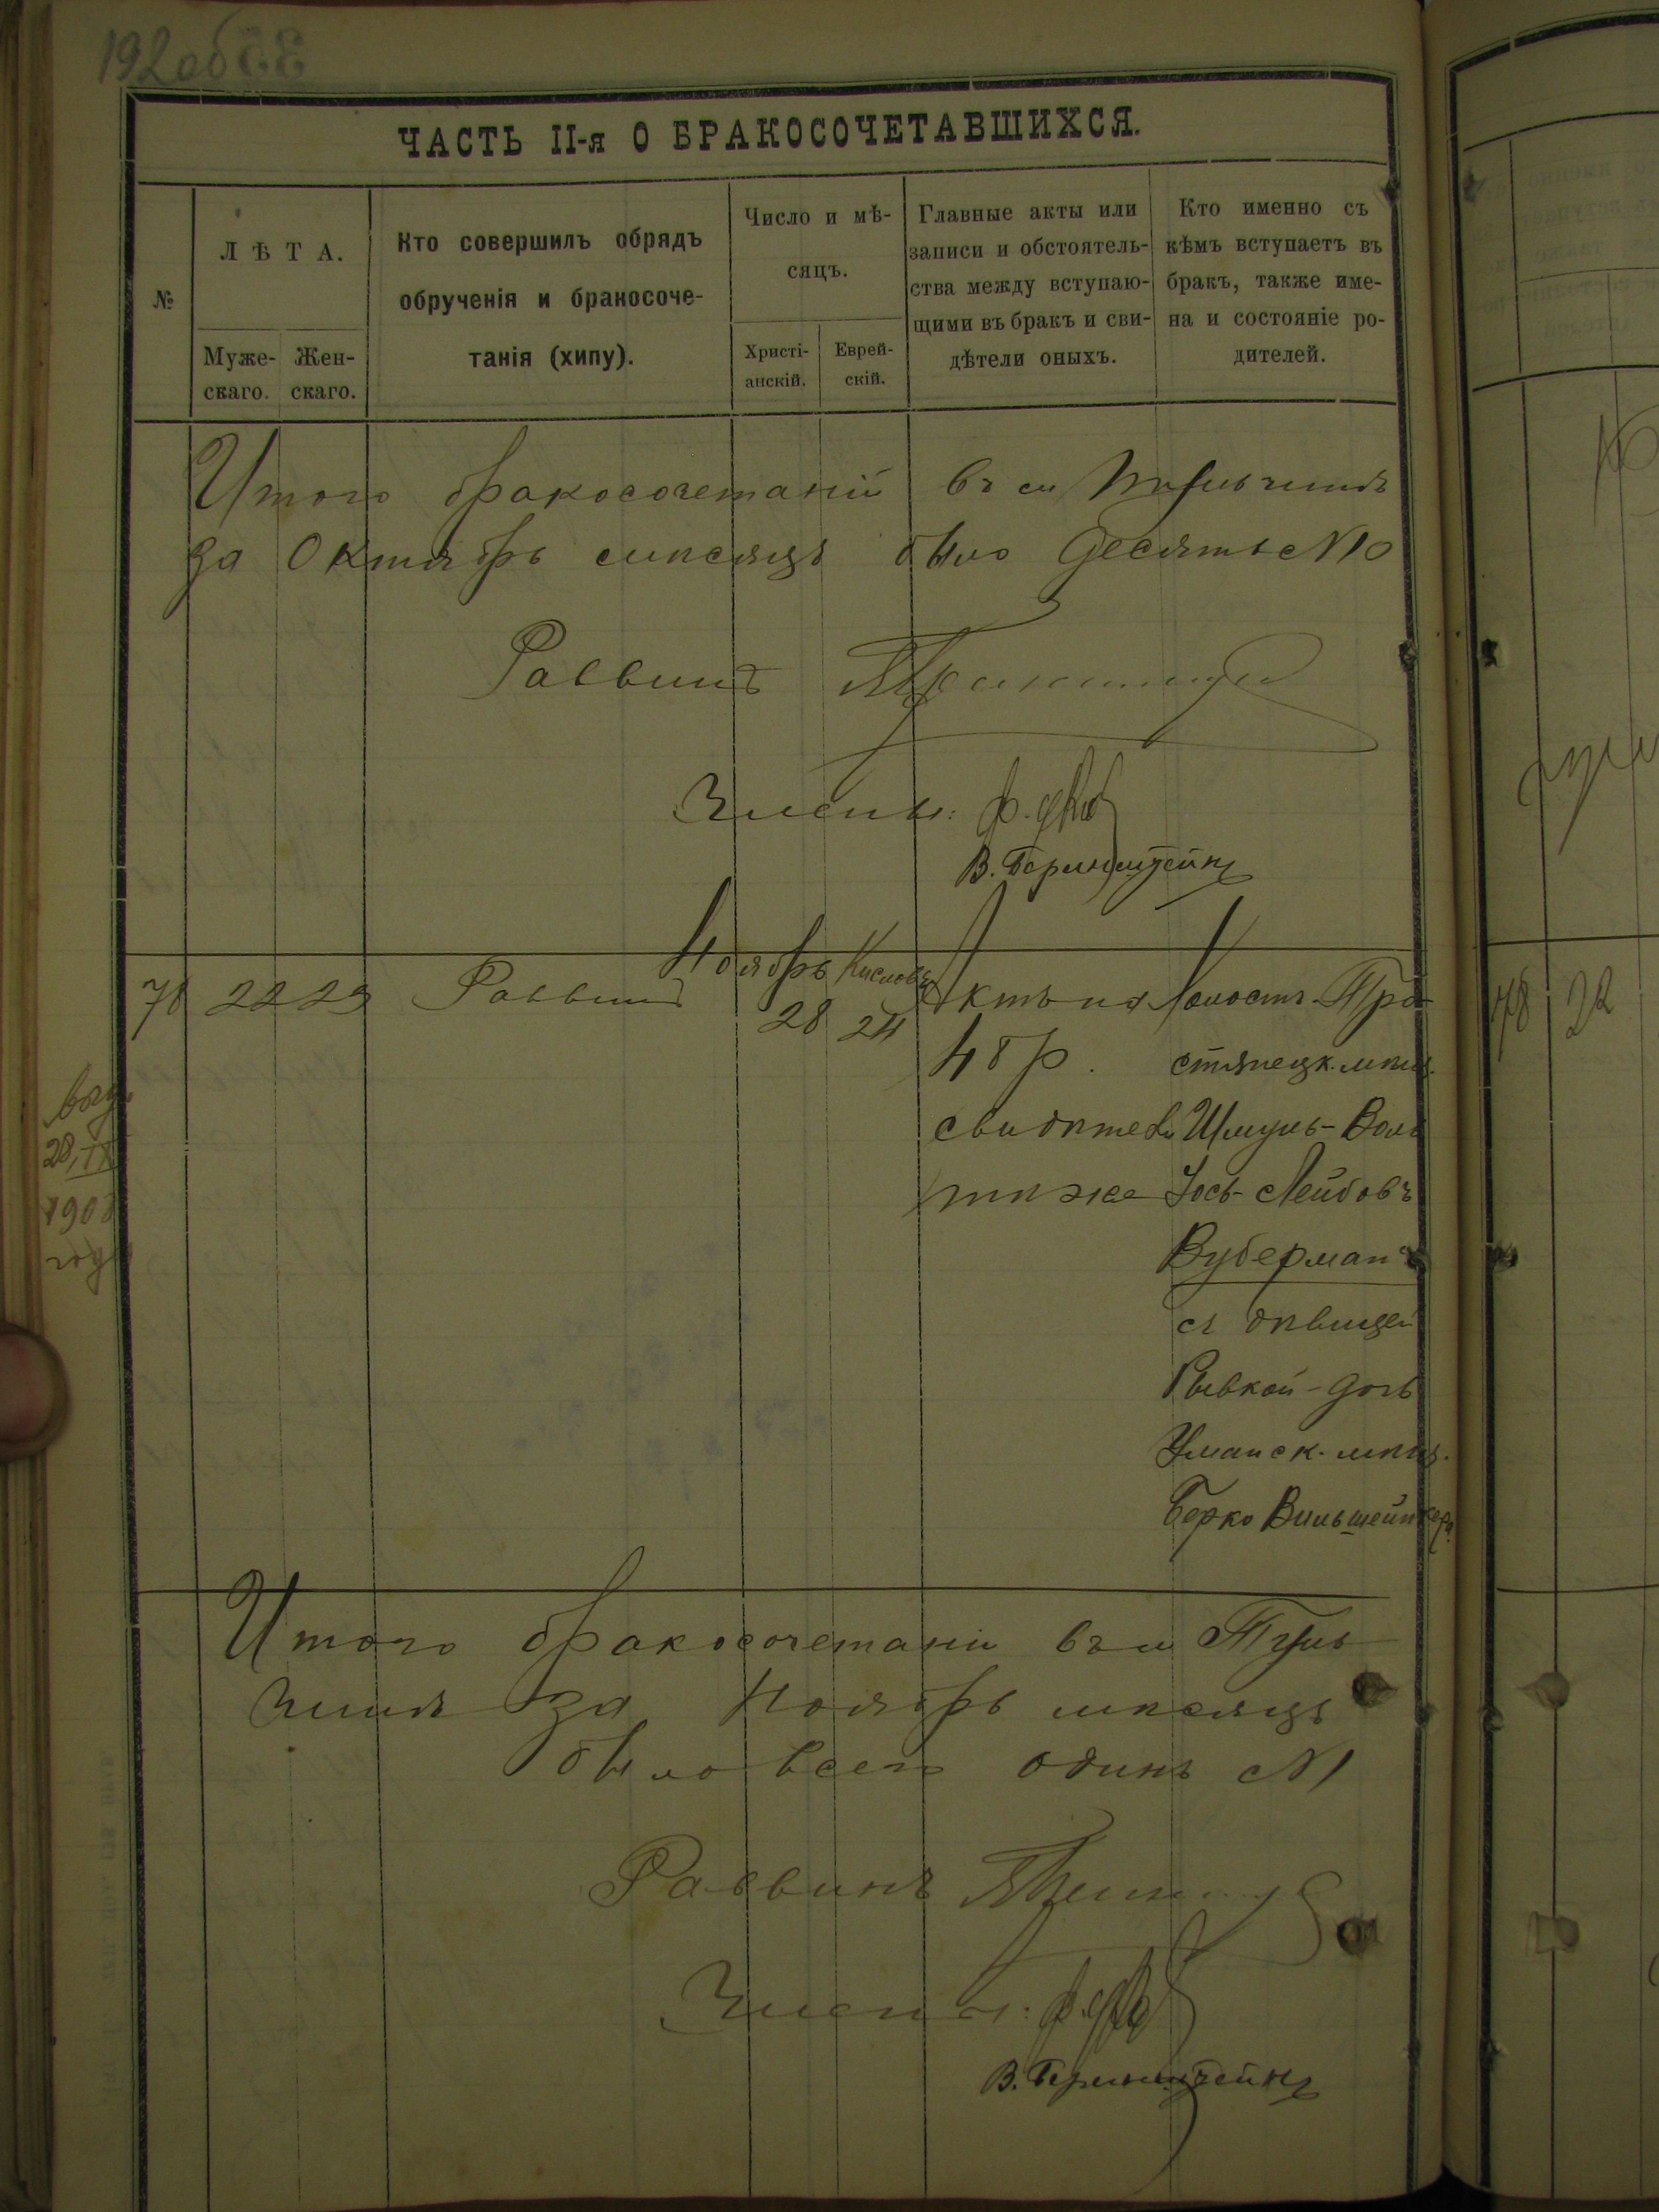 192об
ЧАСТЬ II-я О БРАКОСОЧЕТАВШИХСЯ.
№
ЛѢТА.
Муже-
скаго.
Жен-
скаго.
Кто совершилъ обрядъ
обрученія и бракосоче-
танія (хипу).
Число и мѣ-
сяцъ.
Христі-
анскій.
Еврей-
скій.
Главные акты или
записи и обстоятель-
ства между вступаю-
щими въ бракъ и сви-
дѣтели оныхъ.
Кто именно съ
кѣмъ вступаетъ въ
бракъ, также име-
на и состояніе ро-
дителей.
Итого бракосочетаній въ м Тульчинѣ
за Октябрь мѣсяцъ было Десять №10
Раввинъ
Члены:
В. Беринштейнъ
Ноябрь Кислевъ
78 22 23 Раввинъ 28 24
Актъ на
48 р.
свидѣтели
тѣ же
Холостъ
стянецк. мѣщ.
Шмуль-Воль
Іось-Лейбовъ
Вуберманъ
съ дѣвицей
Рывкой-дочь
Уманск. мѣщ.
Берко
28, IX
1908
года
Итого бракосочетаній въ м Туль
чинѣ за Ноябрь мѣсяцъ
было всего одинъ №1
Раввинъ
Члены:
В. Беринштейнъ
78 22